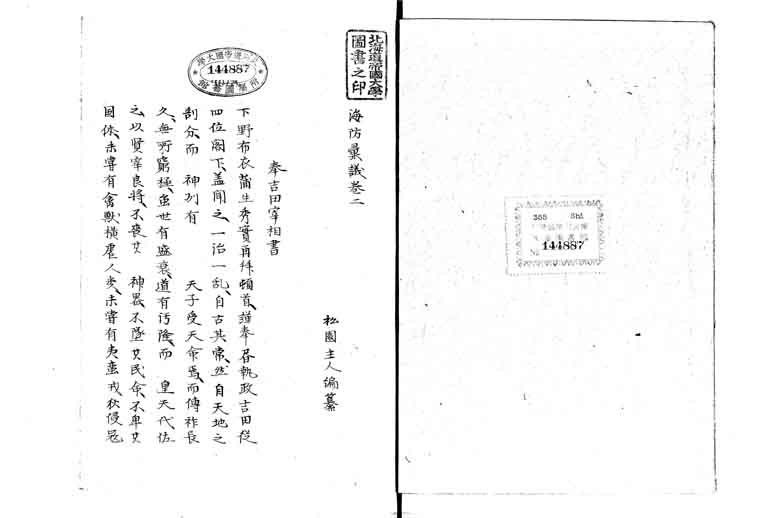 北海道帝國大學
圖書之印
海防彙議卷二
松園主人編纂
奉吉田宰相書
下野布衣蒲生秀實再拜頓首、謹奉書執政吉田從
四位閣下、蓋聞之、一治一亂、自古其常、然自天地之
剖分、而 神州有 天子受天命焉、而傳祚長
久、無所窮極、虽世有盛衰、道有污隆、而 皇天代佑
之、以賢宰良將、不喪其 神器、不墜其民命、不卑其
國体、未嘗有禽獸橫虐人、未嘗有夷蛮戎狄侵冦
144887
144887